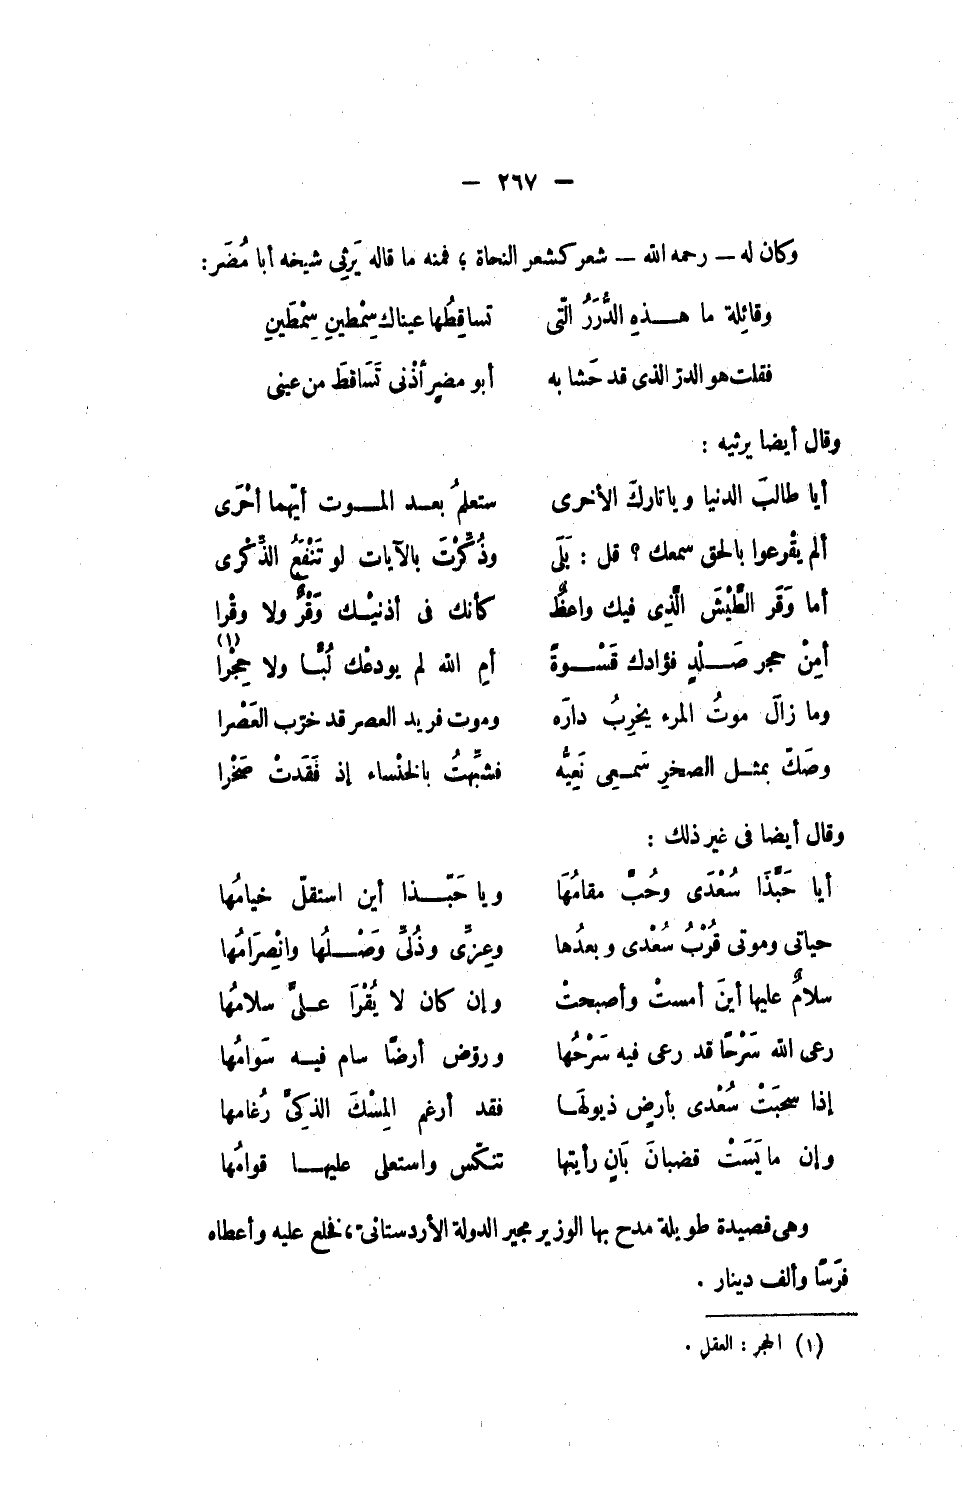 — ٢٦٧ —
وكان له — رحمه الله — شعر كشعر النحاة ؛ فمنه ما قاله يَرثِى شيخه أبا مُضَر :
وقائِلة ما هـــذهِ الدُّرَرُ الّتى تساقِطُها عيناك سِمْطينِ سِمْطَينِ
فقلت هو الدرّ الذى قد حَشا به أبو مضرٍ أذْنى تَسَاقطَ من عينى
وقال أيضا يرثيه :
أيا طالبَ الدنيا وياتاركَ الأخرى ستعلمُ بعـد المـوت أيّهما أحْرَى
ألم يقْرعوا بالحق سمعك ؟ قل : بَلَى وذُكِّرْتَ بالآيات لو تَنْفَعُ الذِّكْرى
أما وَقَر الطَّيْشَ الَّذِى فيك واعظٌ كأنك فى أذنيْـك وَقْرٌ ولا وقْرا
أمِنْ حجر صَـلْدٍ فؤادك قَسْـوةً أمِ الله لم يودعْك لُبًّا ولا حِجْرا (١)
وما زالَ موتُ المرء يخربُ دارَه وموت فريد العصر قد خرّب العَصْرا
وصَكّ بمثـل الصخرِ سَمعى نَعِيُّه فشبِّهتُ بالخنْساء إذ فَقَدتْ صَخْرا
وقال أيضا فى غير ذلك :
أيا حَبَّذَا سُعْدَى وحُبَّ مقامُهَا ويا حَبّـذا أين استقلّ خيامُها
حياتى وموتى قُرْبُ سُعْدى وبعدُها وعِزِّى وذُلىِّ وَصْـلُها وانْصِرَامُها
سلامٌ عليها أينَ أمستْ وأصبحتْ وإن كان لا يُقْرَا علىَّ سلامُها
رعى الله سَرْحًا قد رعى فيه سَرْحُها وروّض أرضًا سام فيـه سَوامُها
إذا سحبَتْ سُعْدى بأرضٍ ذيولهَا فقد أرغم المِسْكَ الذكىَّ رُغامها
وإن مايَسَتْ قضبانَ بَانٍ رأيتها تنكّس واستعلى عليهـا قوامُها
وهى قصيدة طويلة مدح بها الوزير مجير الدولة الأردستانىّ، فخلع عليه وأعطاه
فرَسًا وألف دينار .
(١) الحجر : العقل .